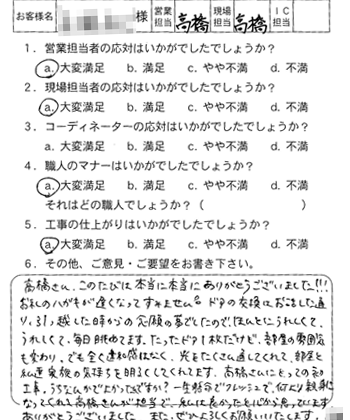 お客様名 様 営業担当 高橋 現場担当 高橋 IC担当
1．営業担当者の応対はいかがでしたでしょうか？
a. 大変満足 b. 満足 c. やや不満 d. 不満
2．現場担当者の応対はいかがでしたでしょうか？
a. 大変満足 b. 満足 c. やや不満 d. 不満
3．コーディネーターの応対はいかがでしたでしょうか？
a. 大変満足 b. 満足 c. やや不満 d. 不満
4．職人のマナーはいかがでしたでしょうか？
a. 大変満足 b. 満足 c. やや不満 d. 不満
それはどの職人でしょうか？（ ）
5．工事の仕上がりはいかがでしたでしょうか？
a. 大変満足 b. 満足 c. やや不満 d. 不満
6．その他、ご意見・ご要望をお書き下さい。
高橋さん、このたびは本当に本当にありがとうございました!!!
お礼のハガキが遅くなってすみません。ドアの交換はお話した通
り、引っ越した時からの念願の夢でしたので、ほんとにうれしくて、
うれしくて、毎日眺めてます。たったドア1枚だけど、部屋の雰囲気
も変わり、でも全く違和感はなく、光をたくさん通してくれて、部屋と
私達家族の気持ちを明るくしてくれてます。高橋さんにとっての初
工事、うちなんかでよかったですか？一生懸命でフレッシュで、何より親身に
なってくれる高橋さんが担当で、私は良かったと心から思っています
ありがとうございました。また、ぜひよろしくお願いいたします。